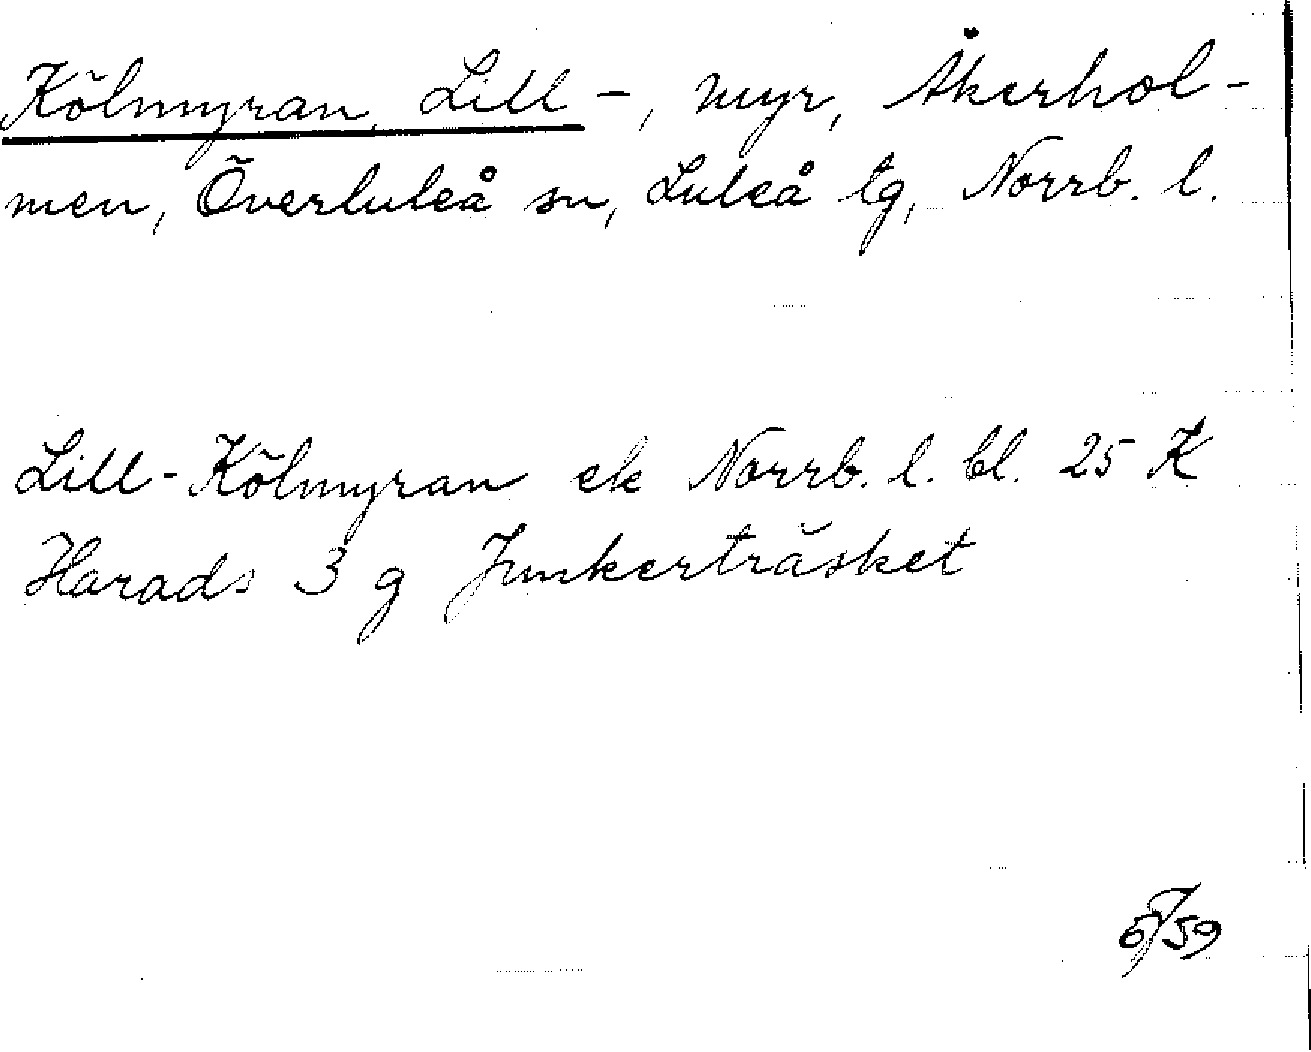 Kölmyran, Lill-, myr, Åkerhol-
men, Överluleå sn, Luleå tg, Norrb. l.
Lill-Kölmyran ek Norrb. l. bl. 25 K
Harads 3 g Junkerträsket
/59